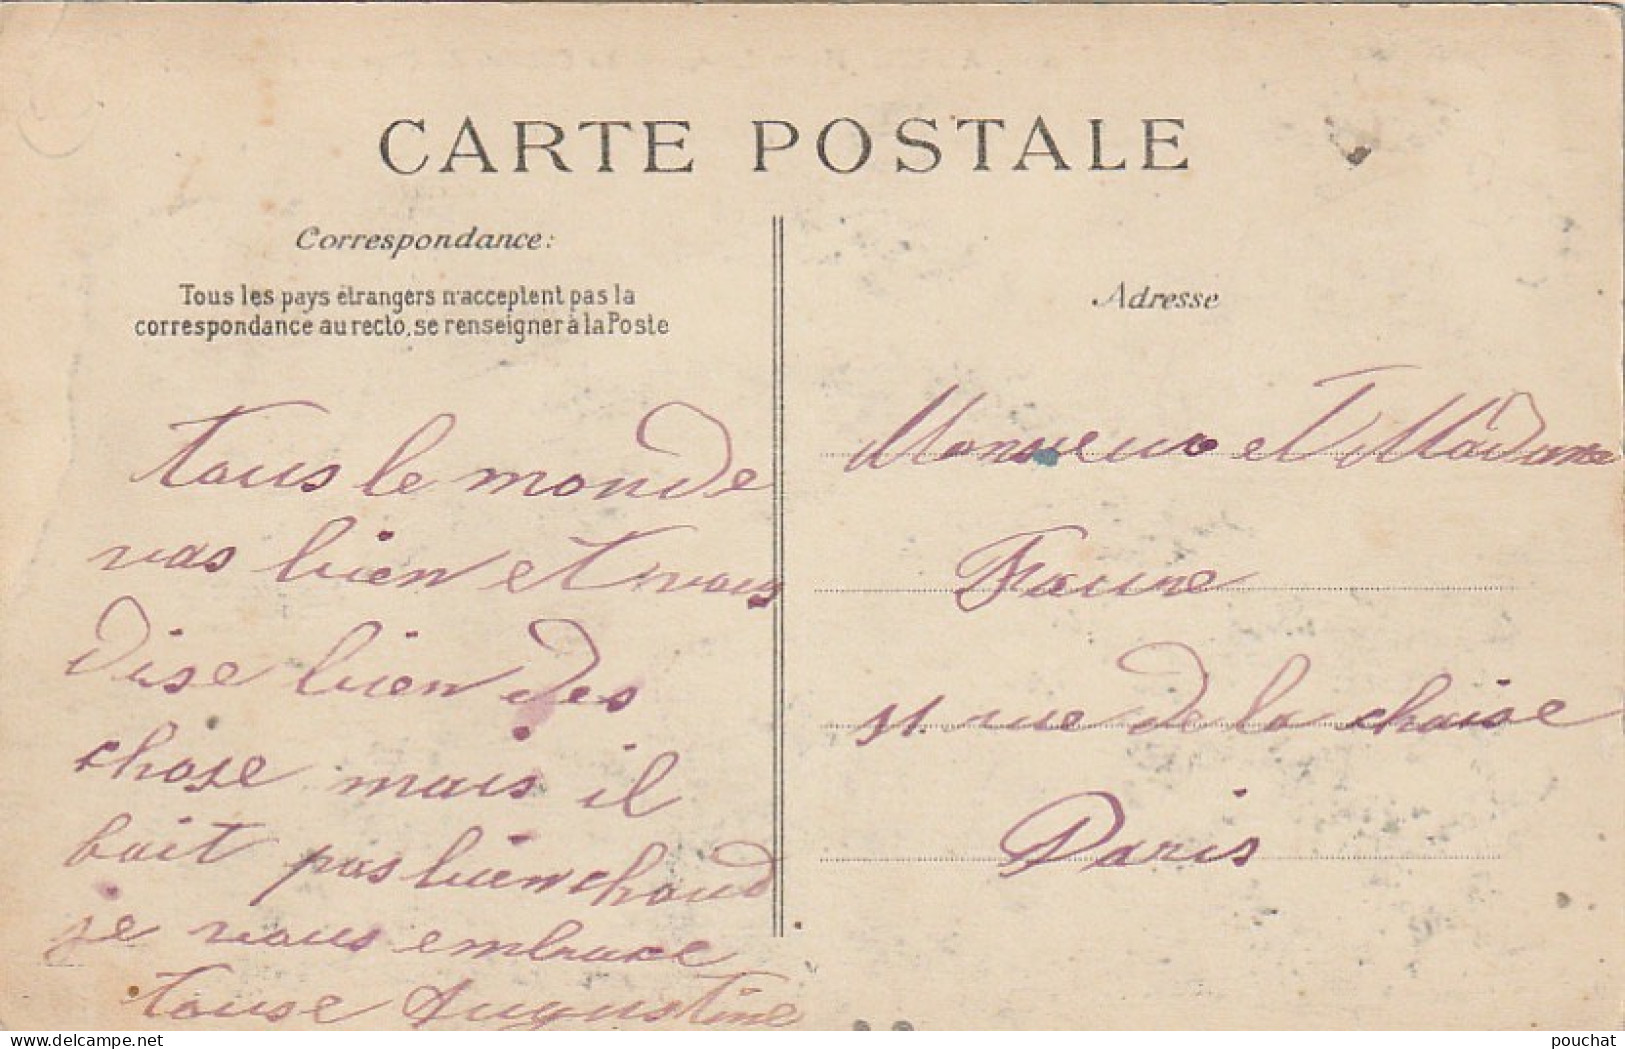 CARTE POSTALE
Correspondance:
Tous les pays étrangers n'acceptent pas la
correspondance au recto, se renseigner à la Poste
tous le monde
vas bien et vous
dise bien des
chose mais il
fait pas bien chaud
je vous embrase
touse Augustine
Adresse
Monsieur et Madame
Faure
rue de la chaise
Paris
www.delcampe.net
pouchat